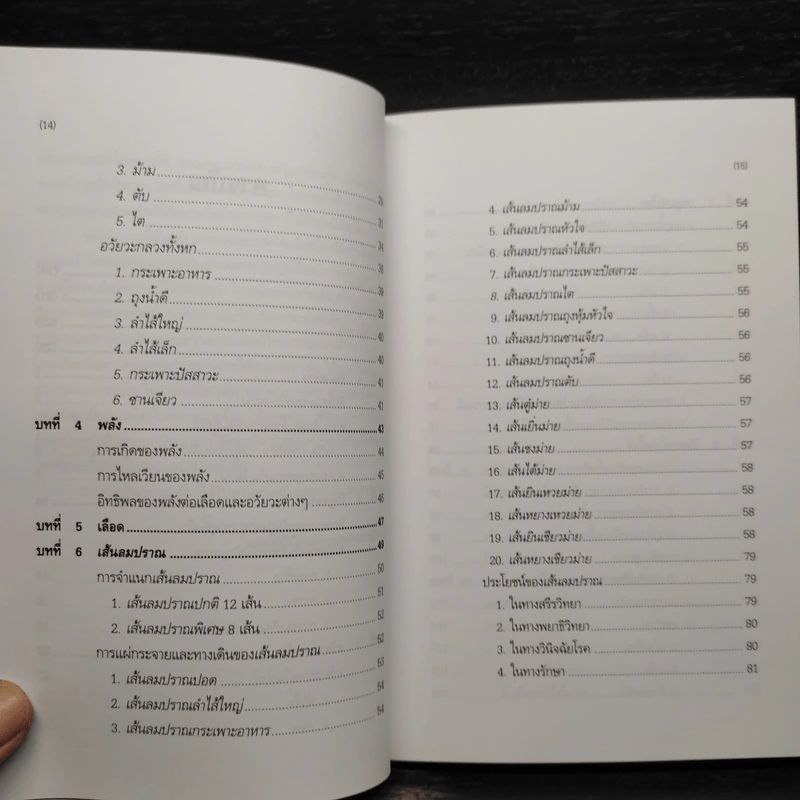 (14)
3. ม้าม 26
4. ตับ 31
5. ไต 31
อวัยวะกลวงทั้งหก 34
1. กระเพาะอาหาร 38
2. ถุงน้ำดี 39
3. ลำไส้ใหญ่ 39
4. ลำไส้เล็ก 40
5. กระเพาะปัสสาวะ 40
6. ซานเจียว 41
บทที่ 4 พลัง 43
การเกิดของพลัง 44
การไหลเวียนของพลัง 45
อิทธิพลของพลังต่อเลือดและอวัยวะต่างๆ 46
บทที่ 5 เลือด 47
บทที่ 6 เส้นลมปราณ 49
การจำแนกเส้นลมปราณ 50
1. เส้นลมปราณปกติ 12 เส้น 51
2. เส้นลมปราณพิเศษ 8 เส้น 52
การแผ่กระจายและทางเดินของเส้นลมปราณ 52
1. เส้นลมปราณปอด 53
2. เส้นลมปราณลำไส้ใหญ่ 54
3. เส้นลมปราณกระเพาะอาหาร 54
(15)
4. เส้นลมปราณม้าม 54
5. เส้นลมปราณหัวใจ 54
6. เส้นลมปราณลำไส้เล็ก 55
7. เส้นลมปราณกระเพาะปัสสาวะ 55
8. เส้นลมปราณไต 55
9. เส้นลมปราณถุงหุ้มหัวใจ 56
10. เส้นลมปราณซานเจียว 56
11. เส้นลมปราณถุงน้ำดี 56
12. เส้นลมปราณตับ 56
13. เส้นตู๋ม่าย 57
14. เส้นเยิ่นม่าย 57
15. เส้นชงม่าย 57
16. เส้นไต้ม่าย 58
17. เส้นยินเหวยม่าย 58
18. เส้นหยางเหวยม่าย 58
19. เส้นยินเชียวม่าย 58
20. เส้นหยางเชียวม่าย 79
ประโยชน์ของเส้นลมปราณ 79
1. ในทางสรีรวิทยา 79
2. ในทางพยาธิวิทยา 80
3. ในทางวินิจฉัยโรค 80
4. ในทางรักษา 81